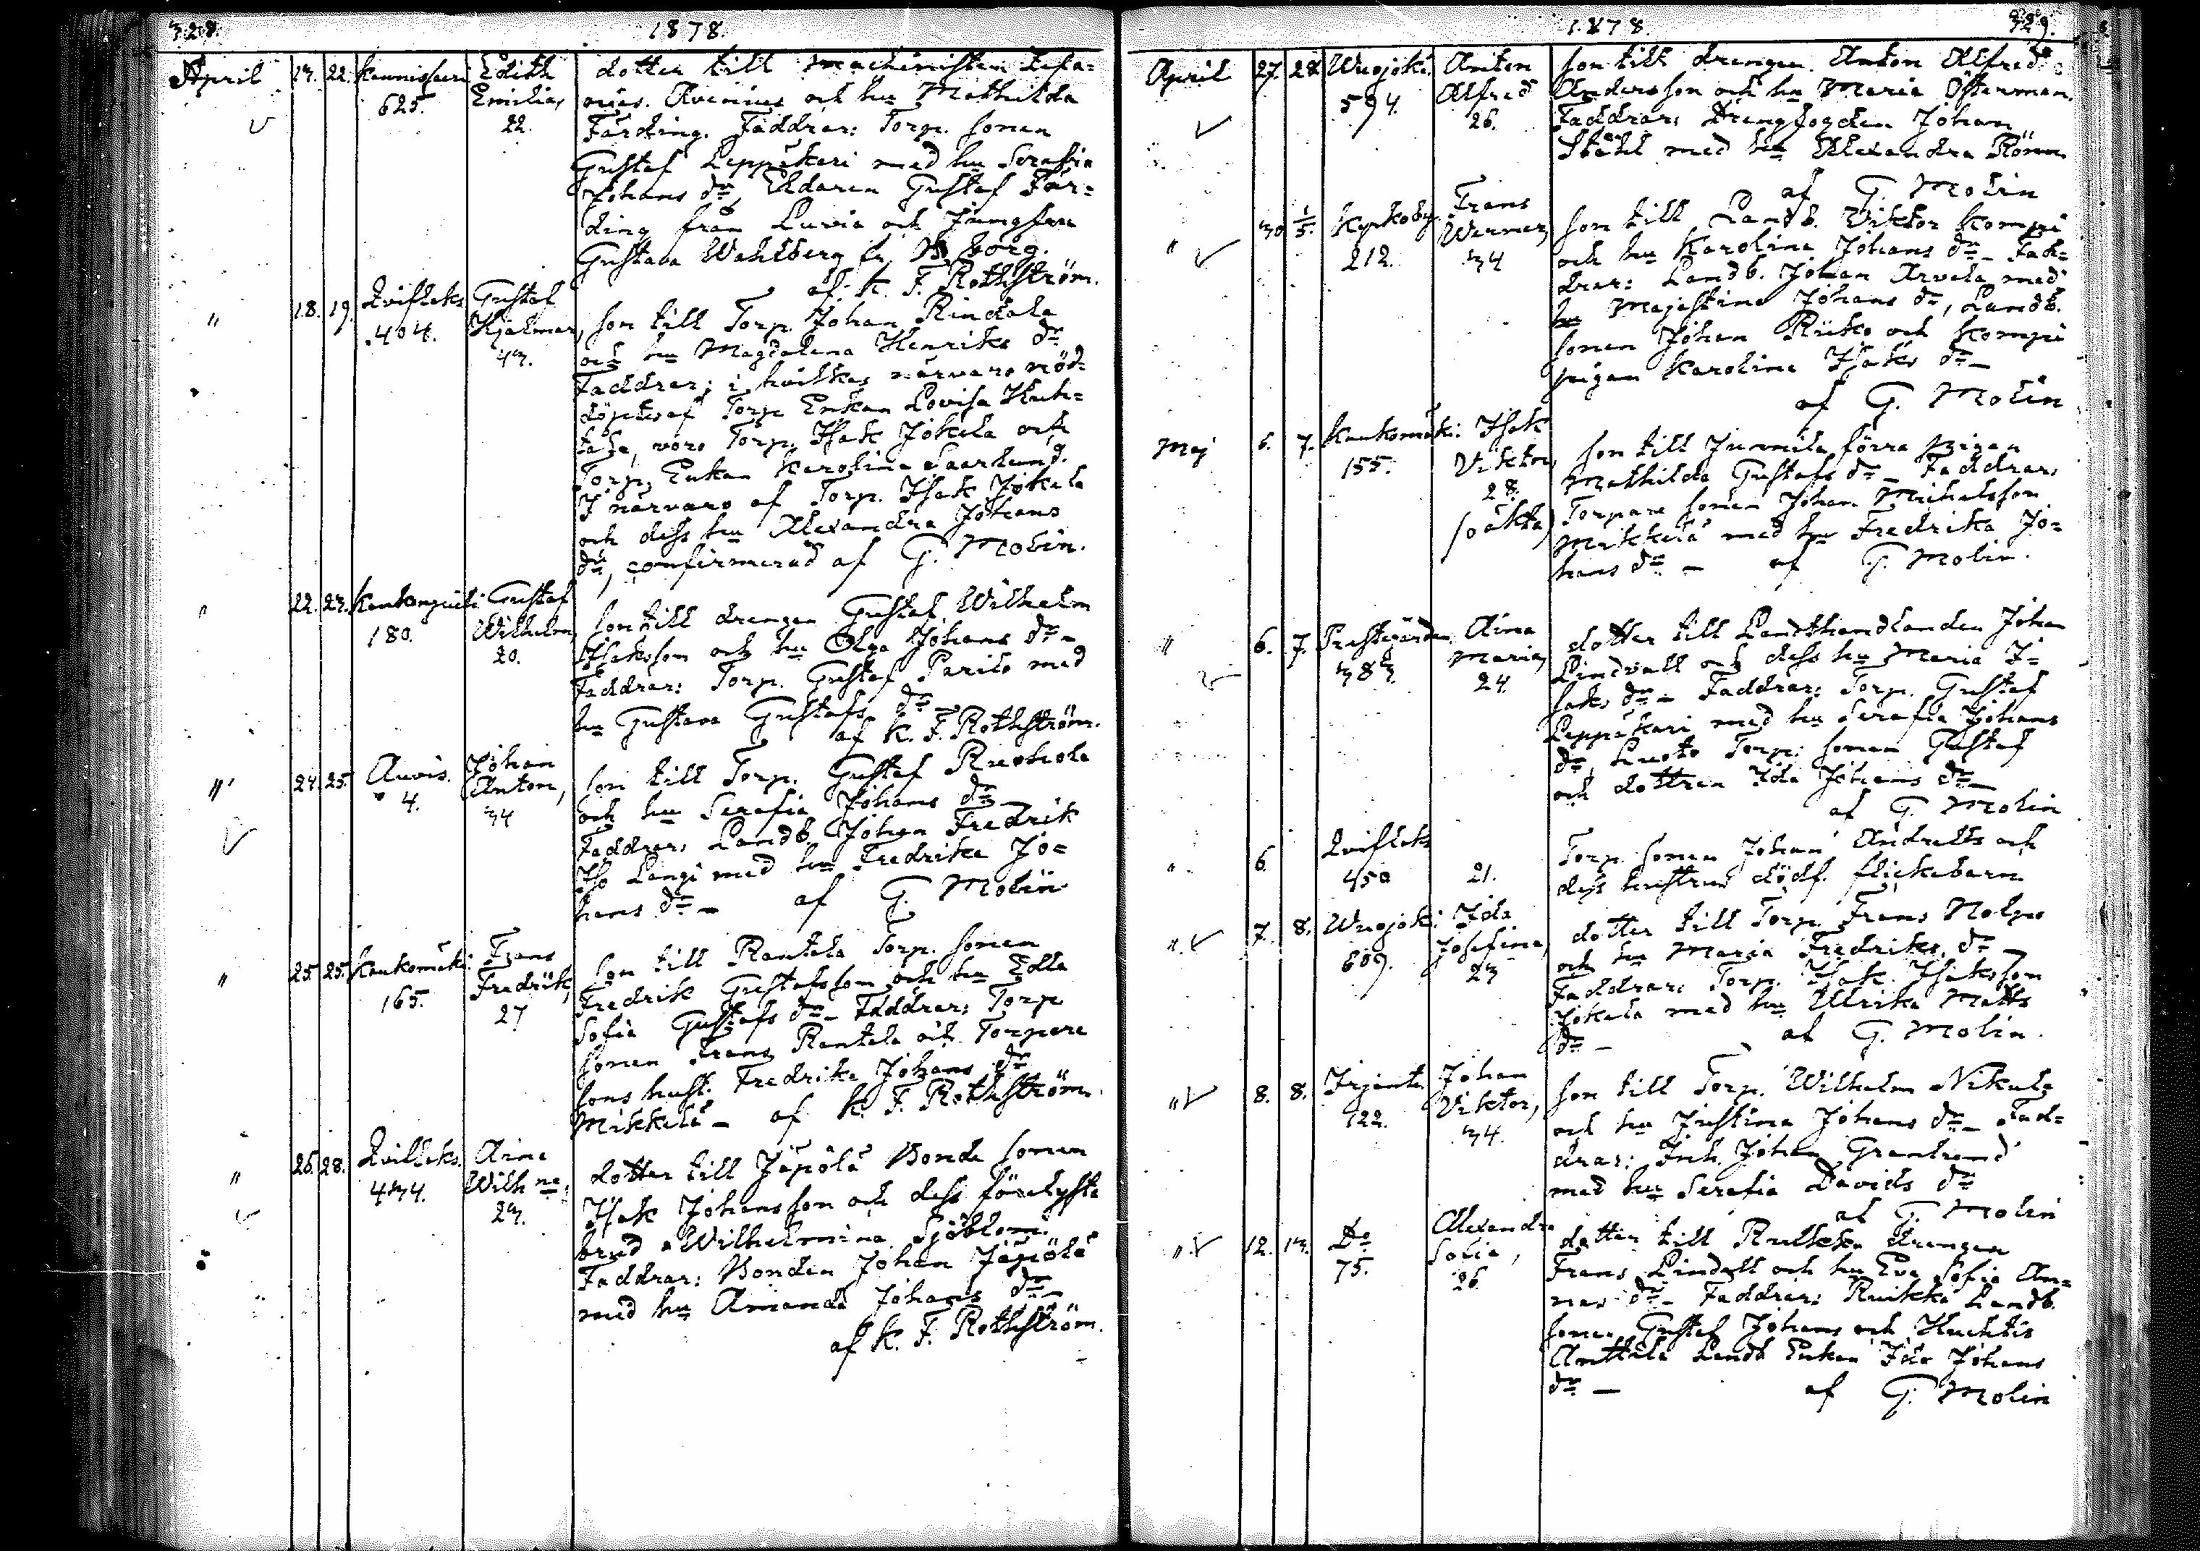 328.
1878.
April 13. 22. Kunnisseri Edith dotter till machinisten Zefa-
625. Emilia, nius Avenius och hu Mathilda
22. Färding. Faddrar: Torp. sonen
Gustaf Leppäkari med hu Serafia
Johans dr, Eldaren Gustaf Fär-
ding från Luvia och Jungfrun
Gustava Wahlberg fr. B.borg.
af K. F. Rothström.
" 18. 19. Qvisleks. Gustaf
404. Hjalmar, son till Torp. Johan Rindala
43. och hu Magdalena Henriks dr
Faddrar; i hvilkas närvaro nöd-
döptes af Torp. Enkan Lovisa Huh-
tasa, voro Torp. Isak Jokela och
Torp. Enkan Karolina Saarlund.
I närvaro af Torp. Isak Jokela
och dess hu Alexandra Johans
dr, confirmerad af G. Molin.
" 22. 23. Kaukonpieli Gustaf
180. Wilhelm, son till drengen Gustaf Wilhelm
20. Isaksson och hu Olga Johans dr -
Faddrar: Torp. Gustaf Parilo med
hu Gustava Gustafs dr -
af K. F. Rothström.
" 24. 25. Auvis. Johan
4. Anton, son till Torp. Gustaf Ruohola
34 och hu Serafia Johans dr -
Faddrar: Landb. Johan Fredrik
Iso Langi med hu Fredrika Jo-
hans dr - af G. Molin
" 25. 25. Kaukomäki: Frans
165. Fredrik, son till Rantala Torp. sonen
27 Fredrik Gustafsson och hu Edla
Sofia Gustafs dr - Faddrar: Torp
sonen Frans Rantala och Torpare
sons hust. Fredrika Johans dr
Mikkilä - af K. F. Rothström.
" 26. 28. Qvilleks. Aina dotter till Jäpölä Bonde sonen
434. Wilhna, Isak Johansson och dess förelyste
23. brud Wilhelmina Sjöblom.
Faddrar: Bonden Johan Jäpölä
med hu Amanda Johans dr -
af K. F. Rothström.
1878.
329.
April 27. 28. Wuojoki. Anton son till drengen Anton Alfred
594. Alfred Andersson och hu Maria Österman.
26. Faddrar: Drengfogden Johan
Ståhl med hu Alexandra Rönn
af G. Molin
" 30 1/5. Kyrkoby. Frans son till Landb. Viktor Komppi
212. Werner, och hu Karolina Johans dr - Fad-
34 drar: Landb. Johan Arvela med
hu Majastina Johans dr, Landb.
sonen Johan Riiko och Komppi
pigan Karolina Isaks dr -
af G. Molin
Maj 6. 7. Kaukomäki: Isak son till Junnila förra pigan
155. Viktor, Mathilda Gustafs dr - Faddrar:
28. Torpare sonen Johan Michelsson
(oäkta) Mikkilä med hu Fredrika Jo-
hans dr - af G. Molin.
" 6. 7. Prestgården. Aina dotter till Landthandlanden Johan
383. Maria, Lindvall och dess hu Maria I-
24. saks dr - Faddrar: Torp. Gustaf
Leppäkari med hu Serafia Johans
dr, Luoto Torp: sonen Gustaf
och dottren Ida Johans dr -
af G. Molin
" 6 Qvisleks Torp. sonen Johan Andretts och
450 21. dess hustrus dödf. flickebarn
" 7. 8. Wuojoki: Ida dotter till Torp. Frans Nolpo
609. Josefina, och hu Maria Fredriks dr -
23 Faddrar: Torp. Isak Isaksson
Jokela med hu Ulrika Matts
dr - af G. Molin.
" 8. 8. Irjanto Johan son till Torp. Wilhelm Nikula
122. Viktor, och hu Justina Johans dr - Fad-
34. drar: Inh. Johan Granlund
med hu Serafia Davids dr
af G. Molin
" 12. 13. Do Alexandra dotter till Ruikka drengen
75. Sofia, Frans Lindell och hu Eva Sofia Am-
26. nas dr - Faddrar: Ruikka Landb.
sonen Gustaf Johans och Huhtis
Anttila Landb Enkan Ida Johans
dr - af G. Molin